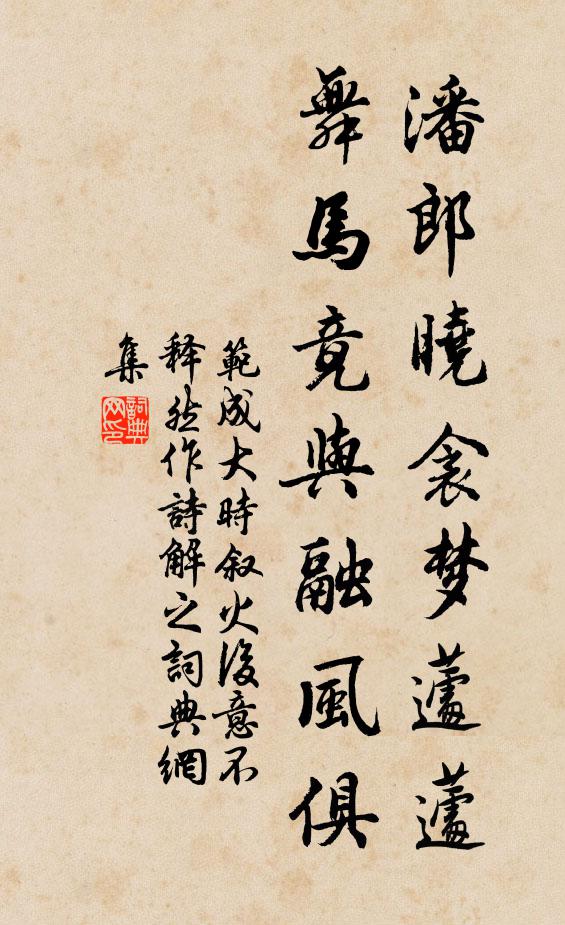 潘郎曉衾梦蘧蘧
舞馬竟與融風俱
範成大時叙火後意不
释然作詩解之詞典網
集
詞典
网印